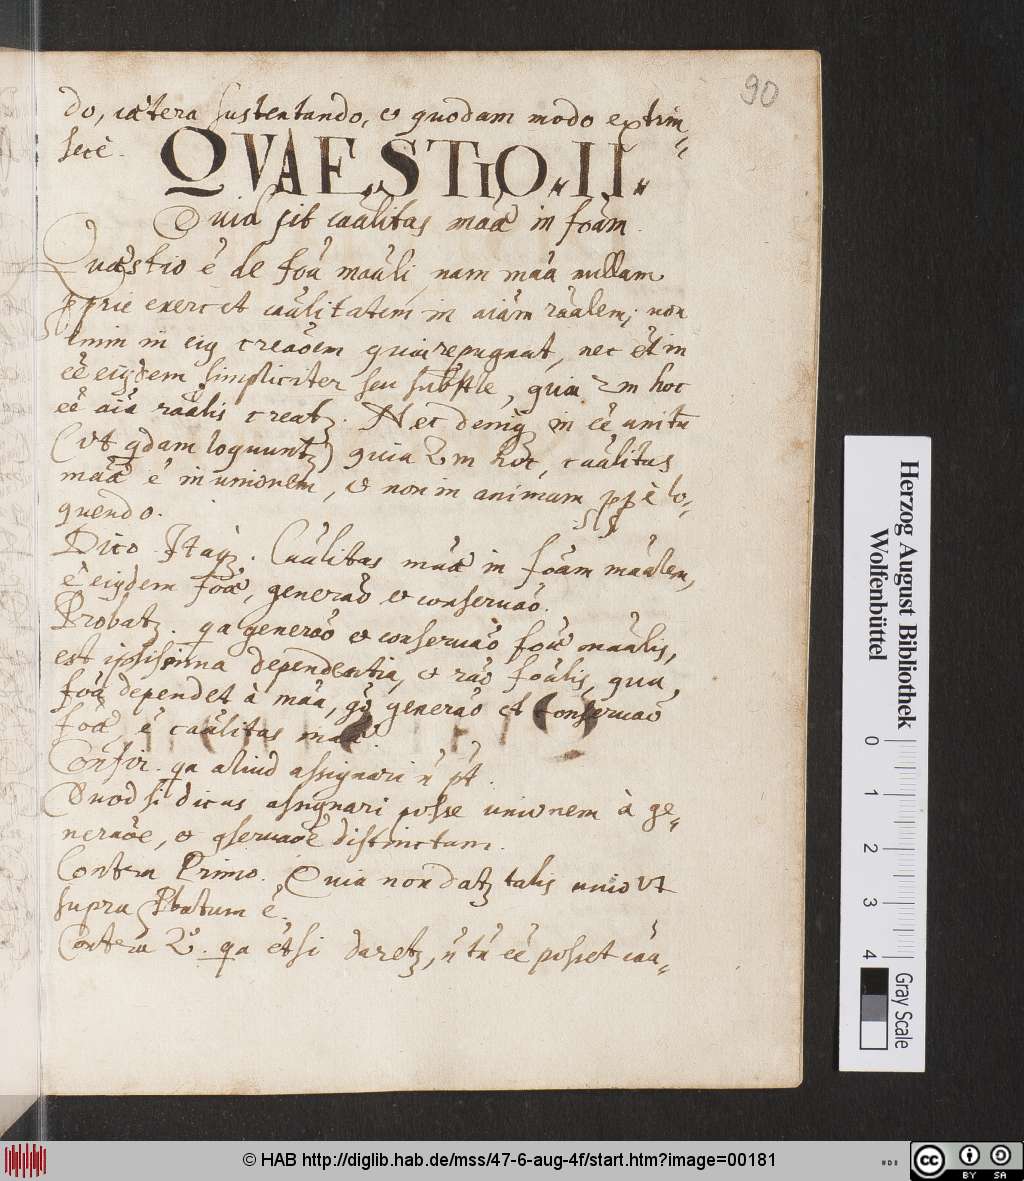 90
do, caetera sustentando, et quodam modo extrin„
secè.
QVAESTIO. II.
Quid sit caālitas māae in foām.
Quaestio ē de foā maāli nam māa nullam
pprie exercet caālitatem in aīām raālem; non
enim in eiꝰ creaōem quia repugnat, nec ēt in
eē eiꝰdem simpliciter seu subst̄le, quia 2m hoc
eē aīa raālis creatꝫ. Nec deniqꝫ in eē unitu
(vt qdam loquuntꝫ) quia 2m hoc, caālitas
māae ē in unionem, et non in animam ppè lo„
quendo.
Dico Itaqꝫ. Caālitas māae in foām maālem,
ē eiꝰdem foāe, generaō et conseruaō.
Probatꝫ. qa generaō et conseruaō foāe maālis,
est ipsissima dependentia, et raō foālis, qua
foā dependet à māa, gō generaō et conseruaō
foāe, ē caālitas māae.
Confir. qa aliud assignari n̄ pt̄.
Quod si dicas assignari posse unionem à ge„
neraōe, et qseruaōe distinctam.
Contra Primo. Quia non datꝫ talis unio vt
supra Pbatum ē.
Contra 2º. qa etsi daretꝫ, n̄ tn̄ eē posset caā„
Herzog August Bibliothek
Wolfenbüttel
0 1 2 3 4
Gray Scale
© HAB http://diglib.hab.de/mss/47-6-aug-4f/start.htm?image=00181
cc
BY SA